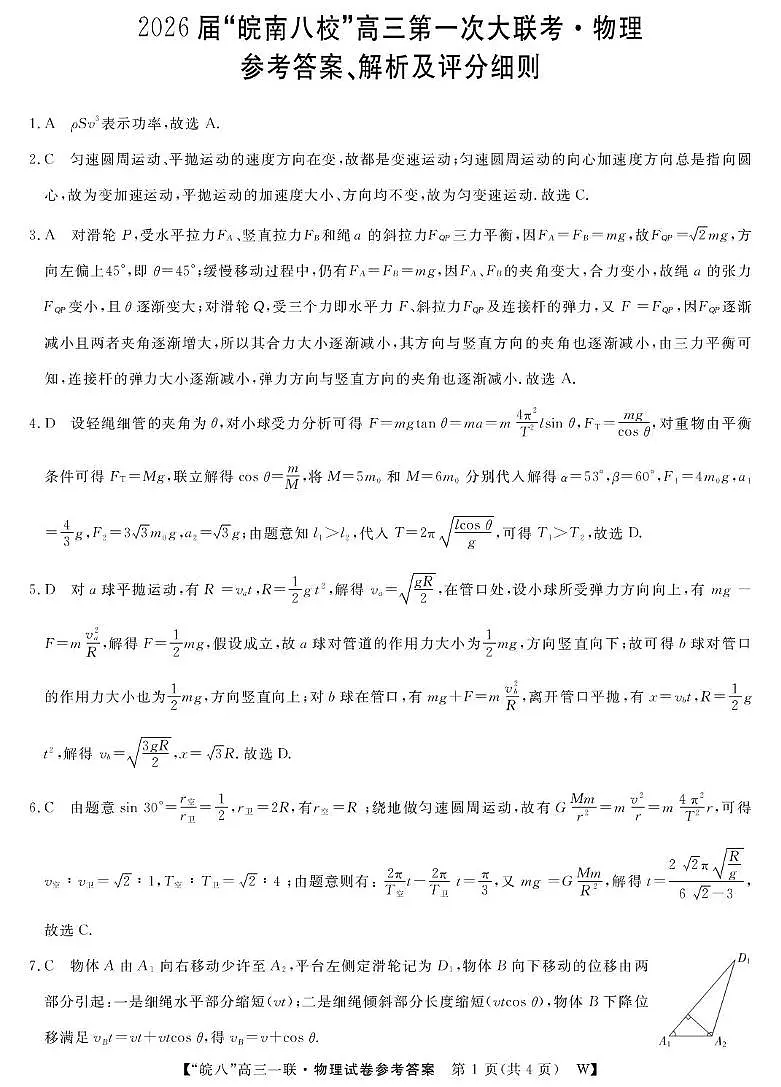 2026 届“皖南八校”高三第一次大联考·物理
参考答案、解析及评分细则
1. A ρSv³表示功率,故选 A.
2. C 匀速圆周运动、平抛运动的速度方向在变,故都是变速运动;匀速圆周运动的向心加速度方向总是指向圆
心,故为变加速运动,平抛运动的加速度大小、方向均不变,故为匀变速运动. 故选 C.
3. A 对滑轮 P,受水平拉力F_A、竖直拉力F_B和绳 a 的斜拉力F_QP三力平衡,因F_A=F_B=mg,故F_QP=√2mg,方
向左偏上45°,即 θ=45°;缓慢移动过程中,仍有F_A=F_B=mg,因F_A、F_B的夹角变大,合力变小,故绳 a 的张力
F_QP变小,且 θ 逐渐变大;对滑轮 Q,受三个力即水平力 F、斜拉力F_QP及连接杆的弹力,又 F =F_QP,因F_QP逐渐
减小且两者夹角逐渐增大,所以其合力大小逐渐减小,其方向与竖直方向的夹角也逐渐减小,由三力平衡可
知,连接杆的弹力大小逐渐减小,弹力方向与竖直方向的夹角也逐渐减小. 故选 A.
4. D 设轻绳细管的夹角为 θ,对小球受力分析可得 F=mgtan θ=ma=m 4π²/T² lsin θ,F_T= mg/cos θ,对重物由平衡
条件可得 F_T=Mg,联立解得 cos θ= m/M,将 M=5m₀ 和 M=6m₀ 分别代入解得 α=53°,β=60°,F₁=4m₀g,a₁
= 4/3 g,F₂=3√3m₀g,a₂=√3g;由题意知 l₁>l₂,代入 T=2π √(lcos θ/g),可得 T₁>T₂,故选 D.
5. D 对 a 球平抛运动,有 R =v_a t,R= 1/2 g t²,解得 v_a= √(gR/2),在管口处,设小球所受弹力方向向上,有 mg −
F=m v_a²/R,解得 F= 1/2 mg,假设成立,故 a 球对管道的作用力大小为 1/2 mg,方向竖直向下;故可得 b 球对管口
的作用力大小也为 1/2 mg,方向竖直向上;对 b 球在管口,有 mg+F=m v_b²/R,离开管口平抛,有 x=v_b t,R= 1/2 g
t²,解得 v_b= √(3gR/2),x= √3R. 故选 D.
6. C 由题意 sin 30°= r空/r卫 = 1/2,r卫=2R,有r空=R ;绕地做匀速圆周运动,故有 G Mm/r² =m v²/r =m 4 π²/T² r,可得
v空 : v卫= √2 : 1,T空 : T卫= √2 : 4 ;由题意则有: 2π/T空 t− 2π/T卫 t= π/3,又 mg =G Mm/R²,解得 t= 2 √2π √(R/g) / (6 √2−3),
故选 C.
7. C 物体 A 由 A₁ 向右移动少许至 A₂,平台左侧定滑轮记为 D₁,物体 B 向下移动的位移由两
部分引起:一是细绳水平部分缩短(vt);二是细绳倾斜部分长度缩短(vtcos θ),物体 B 下降位
移满足 v_B t=vt+vtcos θ,得 v_B=v+cos θ.
D₁
A₁ A₂
【“皖八”高三一联·物理试卷参考答案 第 1 页(共 4 页) W】